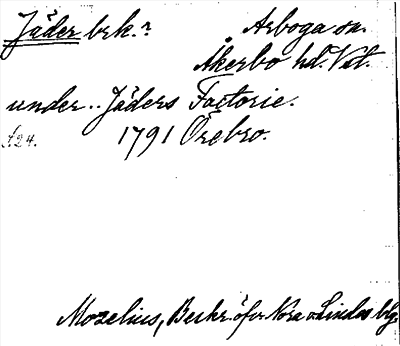 Jäder brk.? Arboga sn.
Åkerbo hd. Vstm.
under.. Jäders Factorie.
s. 24. 1791 Örebro.
Mozelius, Beskr. öfver Nora o Lindes blg.